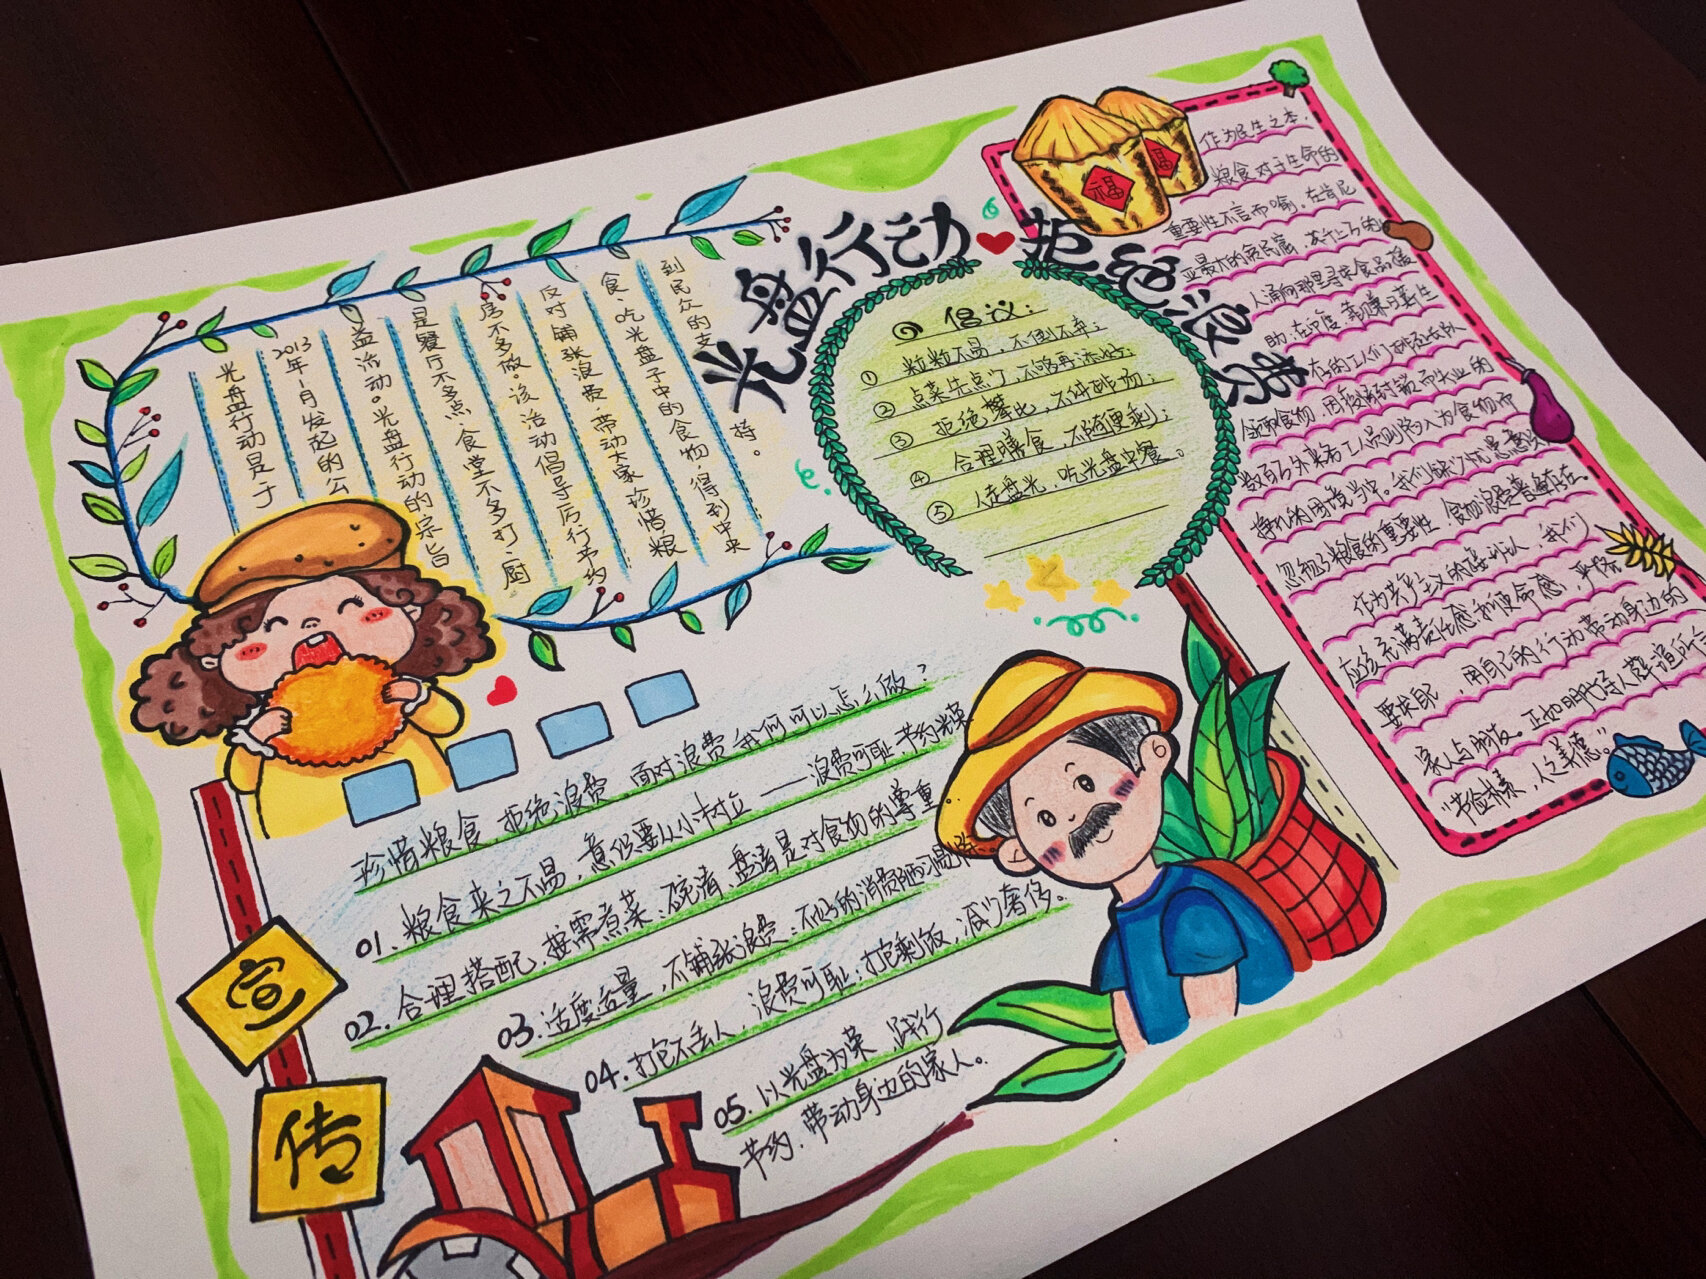 光盘行动 拒绝浪费
光盘行动是于
2013年1月发起的公
益活动。光盘行动的宗旨
是餐厅不多点、食堂不多打、厨
房不多做。该活动倡导厉行节约
反对铺张浪费,带动大家珍惜粮
食、吃光盘子中的食物,得到中央
到民众的支
持。
倡议:
① 粒粒不易,不倒不弃;
② 点菜先点少,不够再添好;
③ 拒绝攀比,不讲排场;
④ 合理膳食,不随便剩;
⑤ 人走盘光,吃光盘中餐。
福
福
作为民生之本,
粮食对于生命的
重要性不言而喻。在肯尼
亚最大的贫民窟,若干上万的
人涌向那里寻求食品援
助,在印度靠赚日薪生
存的工人们排起长队
领取食物,因被封锁而失业的
数百万外来务工人员则陷入为食物而
挣扎的困境当中。我们缺少忧患意识
忽视了粮食的重要性,食物浪费普遍存在。
作为共产主义的接班人,我们
应该充满责任感和使命感,严格
要求自己,用自己的行动带动身边的
家人与朋友。正如明代诗人薛瑄所言
“节俭朴素,人之美德。”
珍惜粮食,拒绝浪费 面对浪费我们可以怎么做?
01. 粮食来之不易,意识要从小树立——浪费可耻,节约光荣
02. 合理搭配,按需煮菜;碗清、盘清是对食物的尊重
03. 适度适量,不铺张浪费;不好的消费陋习易除
04. 打包不丢人,浪费可耻;打包剩饭,减少奢侈。
05. 以光盘为荣,践行
节约,带动身边的家人。
宣
传